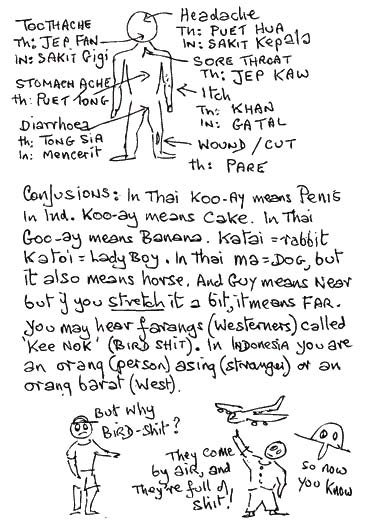 TOOTHACHE
Th: JEP FAN
IN: SAKIT Gigi
STOMACH ACHE
th: PUET TONG
Diarrhoea
th: TONG SIA
In: Mencerit
Headache
Th: PUET HUA
IN: SAKIT Kepala
SORE THROAT
Th: JEP KAW
Itch
Th: KHAN
IN: GATAL
WOUND/CUT
th: PARE
Confusions: In Thai Koo-Ay means Penis
In Ind. Koo-ay means Cake. In Thai
Goo-ay means Banana. Katai = rabbit
Katoi = Lady Boy. In Thai ma = DOG, but
it also means horse. And Guy means Near
but if you stretch it a bit, it means FAR.
You may hear farangs (westerners) called
'Kee Nok' (BIRD SHIT). In INDONESIA you are
an orang (person) asing (stranger) or an
orang barat (West).
But why
BIRD-SHIT?
They come
by air, and
They're full of
shit!
so now
you know